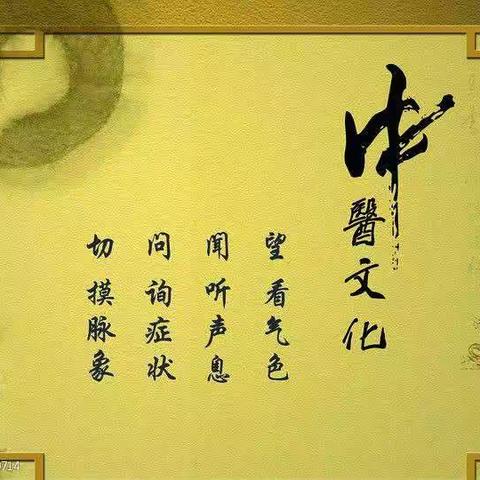 中醫文化
望 看气色
聞 听声息
问 询症状
切 摸脉象